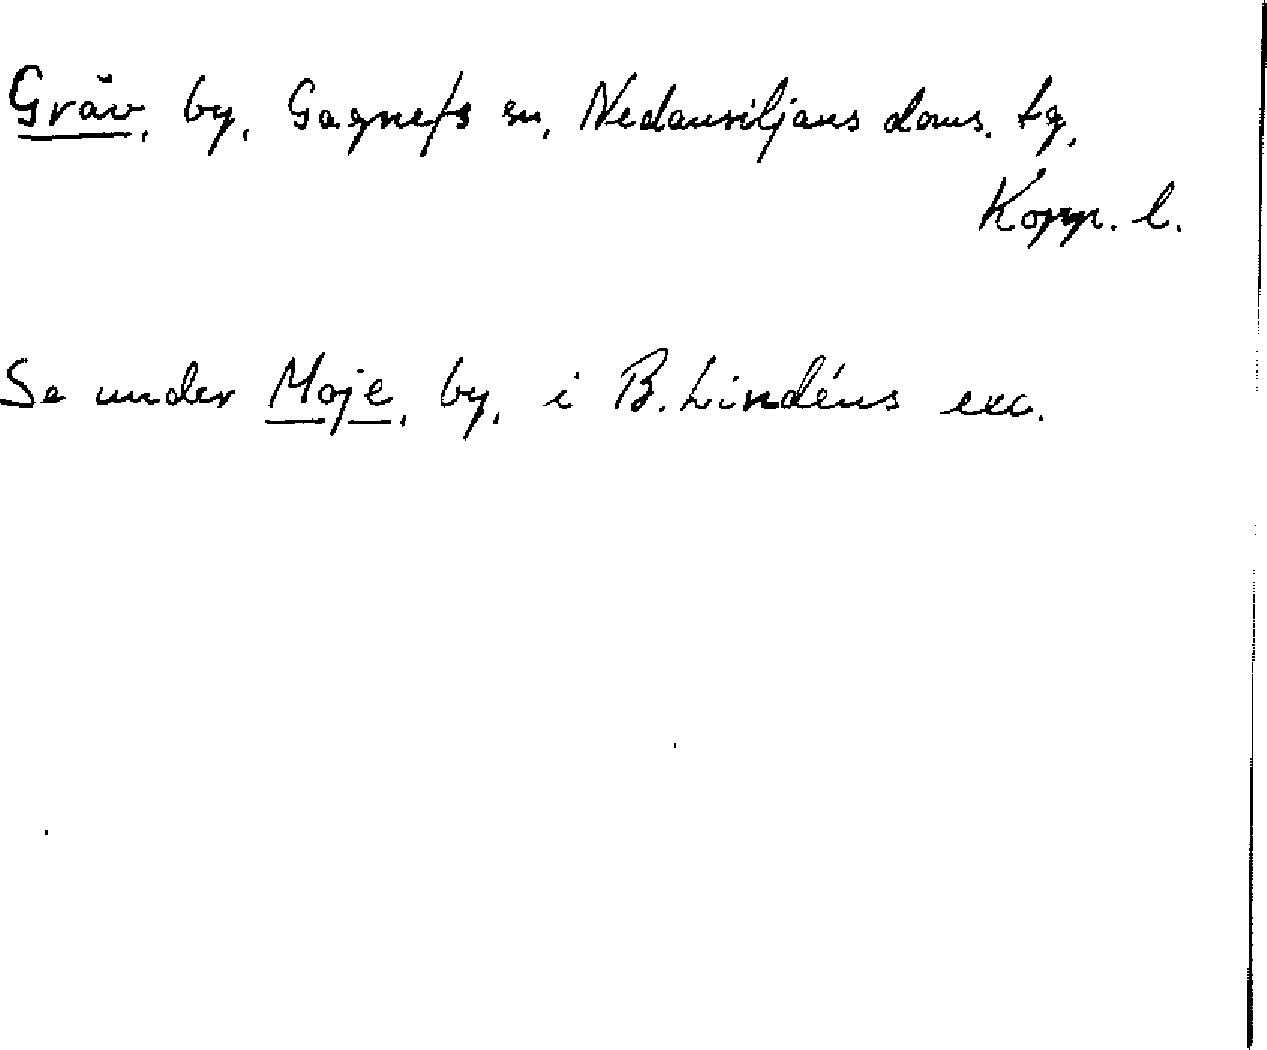 Gräv, by, Gagnefs sn, Nedansiljans doms. tg,
Kopp. l.
Se under Moje, by, i B. Lindéns exc.